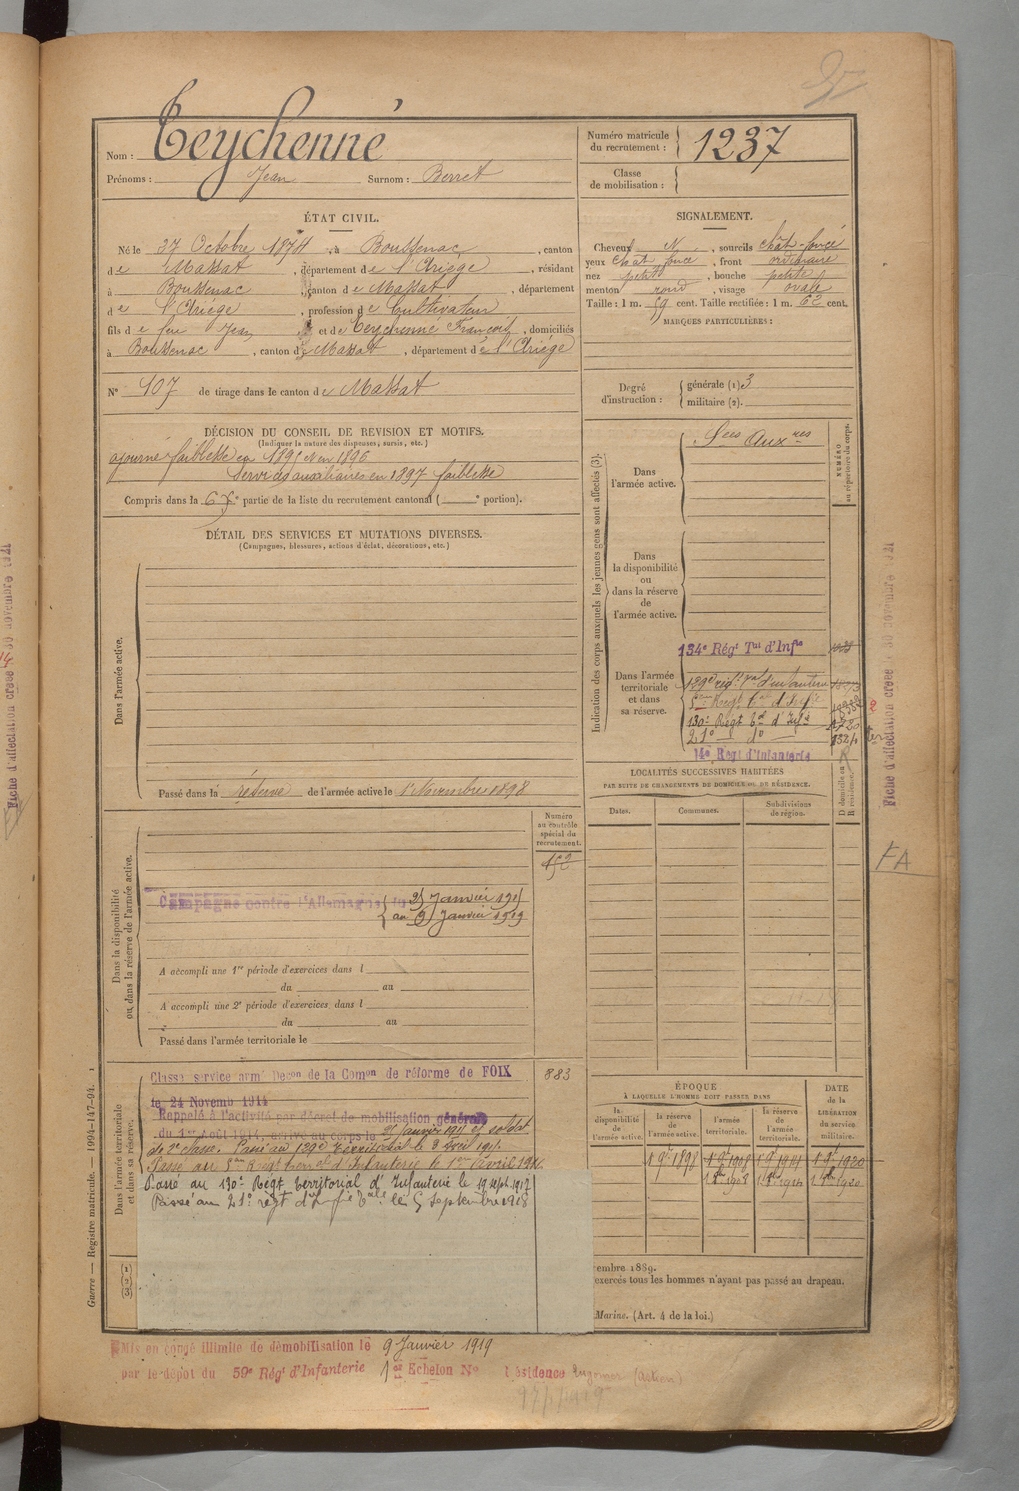 Teychenné
Nom :
Prénoms : Jean Surnom : Berret
Numéro matricule du recrutement : 1237
Classe de mobilisation :
ÉTAT CIVIL.
Né le 27 Octobre 1874, à Boussenac, canton
de Massat, département de l'Ariége, résidant
à Boussenac, canton de Massat, département
de l'Ariége, profession de Cultivateur
fils de feu Jean et de Teychenné Françoise, domiciliés
à Boussenac, canton de Massat, département de l'Ariége
N° 107 de tirage dans le canton de Massat
SIGNALEMENT.
Cheveux N., sourcils chât-foncé
yeux chat foncé, front ordinaire
nez petit, bouche petite
menton rond, visage ovale
Taille : 1 m. 59 cent. Taille rectifiée : 1 m. 62 cent.
MARQUES PARTICULIÈRES :
Degré d'instruction : générale (1) 3
militaire (2).
DÉCISION DU CONSEIL DE REVISION ET MOTIFS.
(Indiquer la nature des dispenses, sursis, etc.)
ajourné faiblesse en 1895 et en 1896
Services auxiliaires en 1897 faiblesse
Compris dans la 6e partie de la liste du recrutement cantonal ( e portion).
DÉTAIL DES SERVICES ET MUTATIONS DIVERSES.
(Campagnes, blessures, actions d'éclat, décorations, etc.)
Dans l'armée active.
Passé dans la réserve de l'armée active le 1 Novembre 1898
Indication des corps auxquels les jeunes gens sont affectés (3).
NUMÉRO au répertoire du corps.
Dans l'armée active.
Sces Auxres
Dans la disponibilité ou dans la réserve de l'armée active.
Dans l'armée territoriale et dans sa réserve.
134e Régt Tal d'Infie
129e régt tal d'infanterie
130e Régt Tal d'Infie
21e do
14e Régt d'Infanterie
LOCALITÉS SUCCESSIVES HABITÉES
PAR SUITE DE CHANGEMENTS DE DOMICILE OU DE RÉSIDENCE.
Dates.
Communes.
Subdivisions de région.
D domicile ou R résidence.
Numéro au contrôle spécial du recrutement.
Dans la disponibilité ou dans la réserve de l'armée active.
Campagne contre l'Allemagne du 25 Janvier 1915
au 9 Janvier 1919
A accompli une 1re période d'exercices dans l
du au
A accompli une 2e période d'exercices dans l
du au
Passé dans l'armée territoriale le
Dans l'armée territoriale et dans sa réserve.
Classé service armé Décon de la Comon de réforme de FOIX
le 24 Novemb 1914
883
Rappelé à l'activité par décret de mobilisation générale
du 1er Août 1914, arrivé au corps le 25 Janvier 1915 et soldat
de 2e classe. Passé au 129e Territorial le
Passé au Régt territal d'Infanterie le 1er avril 191
Passé au 130e Régt Territorial d'Infanterie le 19 sept 1917
Passé au 21e régt le 5 septembre 1918
ÉPOQUE
À LAQUELLE L'HOMME DOIT PASSER DANS
la disponibilité de l'armée active.
la réserve de l'armée active.
l'armée territoriale.
la réserve de l'armée territoriale.
DATE de la LIBÉRATION du service militaire.
1 9bre 1898
1 9bre 1908
1 9bre 1914
1 9bre 1920
(1)
(2)
(3)
embre 1889.
exercés tous les hommes n'ayant pas passé au drapeau.
Marine. (Art. 4 de la loi.)
Guerre — Registre matricule. — 1994-147-94.
Mis en congé illimité de démobilisation le 9 Janvier 1919
par le dépôt du 59e Rég' d'Infanterie 1er Echelon N° Résidence
Fiche d'affectation créée 30 novembre 1921
Fiche d'affectation créée 30 novembre 1921
FA